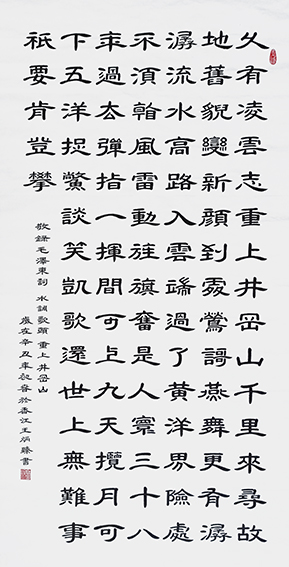 久有凌雲志重上井岡山千里來尋故
地舊貌變新顔到處鶯謌燕舞更有潺
潺流水高路入雲端過了黃洋界險處
不須看風雷動旌旗奮是人寰三十八
年過去彈指一揮間可上九天攬月可
下五洋捉鱉談笑凱歌還世上無難事
祇要肯登攀
敬錄毛澤東詞 水調歌頭 重上井岡山
歲在辛丑年於香江王炳臻書